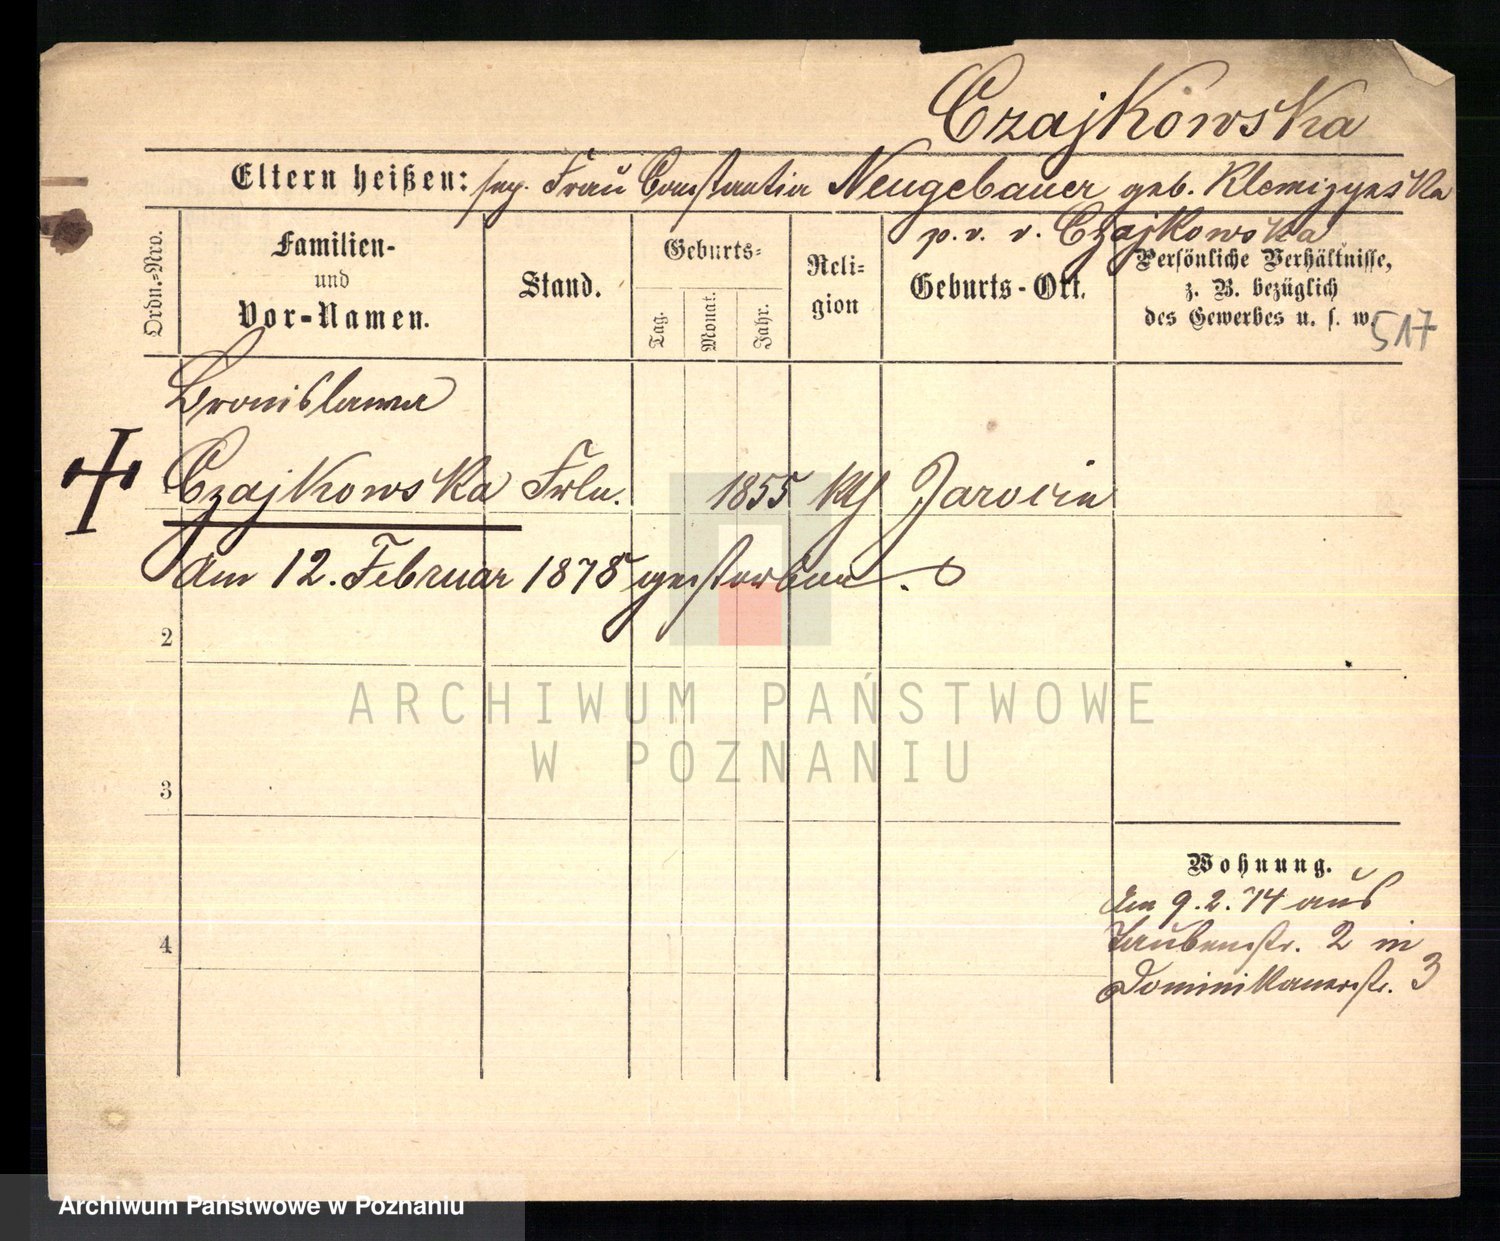 Czajkowska
Eltern heißen: sep. Frau Constantia Neugebauer geb.
p. v. v. Czajkowska
Ordn.-Nro.
Familien-
und
Vor-Namen.
Stand.
Geburts-
Tag.
Monat.
Jahr.
Reli-
gion
Geburts-Ort.
Persönliche Verhältnisse,
z. B. bezüglich
des Gewerbes u. s. w.
517
Bronislawa
Czajkowska Frln. 1855 kth Jarocin
Am 12. Februar 1878 gestorben.
2
3
4
Wohnung.
Am 9. 2. 74 aus
Taubenstr. 2 in
Dominikanerstr. 3
ARCHIWUM PAŃSTWOWE
W POZNANIU
Archiwum Państwowe w Poznaniu